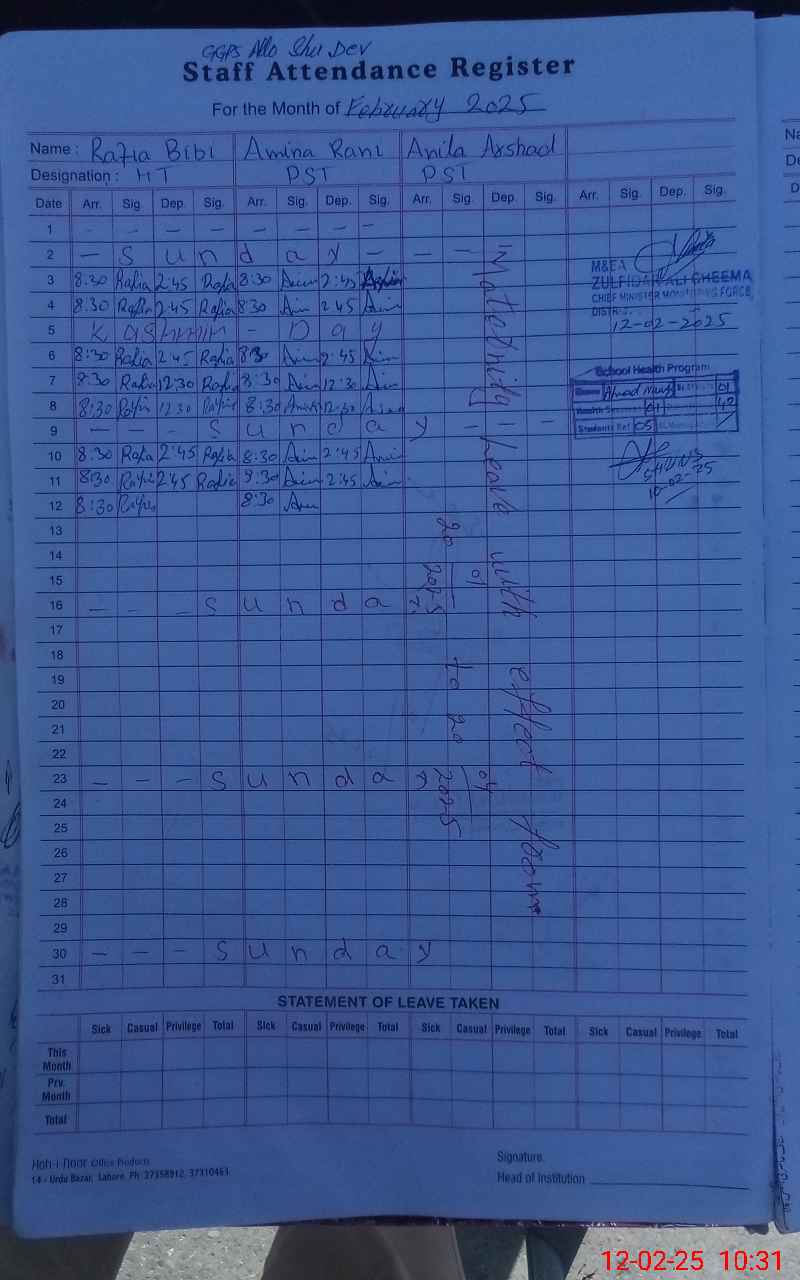 GGPS Allo Shu Dev
Staff Attendance Register
For the Month of February 2025
Name : Rafia Bibi Amina Rani Anila Arshad
Designation : HT PST PST
Date Arr. Sig. Dep. Sig. Arr. Sig. Dep. Sig. Arr. Sig. Dep. Sig. Arr. Sig. Dep. Sig.
1 - - - - - - - -
2 - S u n d a y - - -
3 8:30 Rafia 2:45 Rafia 8:30 2:45
4 8:30 Rafia 2:45 Rafia 8:30 2:45
5 Kashmir - Day
6 8:30 Rafia 2:45 Rafia 8:30 2:45
7 8:30 Rafia 12:30 Rafia 8:30 12:30
8 8:30 Rafia 12:30 Rafia 8:30 12:30
9 - - - S u n d a y - - -
10 8:30 Rafia 2:45 Rafia 8:30 2:45
11 8:30 Rafia 2:45 Rafia 8:30 2:45
12 8:30 Rafia 8:30
13
14
15
16 - - - S u n d a y
17
18
19
20
21
22
23 - - - S u n d a y
24
25
26
27
28
29
30 - - - S u n d a y
31
Maternity Leave with effect from
20/01/2025 to 20/04/2025
M&EA
ZULFIQAR ALI CHEEMA
CHIEF MINISTER MONITORING FORCE
12-02-2025
School Health Program
01
04 42
Students Ref 05
10-02-25
STATEMENT OF LEAVE TAKEN
Sick Casual Privilege Total Sick Casual Privilege Total Sick Casual Privilege Total Sick Casual Privilege Total
This Month
Prv. Month
Total
Koh-i-Noor Office Products
14 - Urdu Bazar, Lahore. Ph: 37358912, 37310463
Signature
Head of Institution
12-02-25 10:31